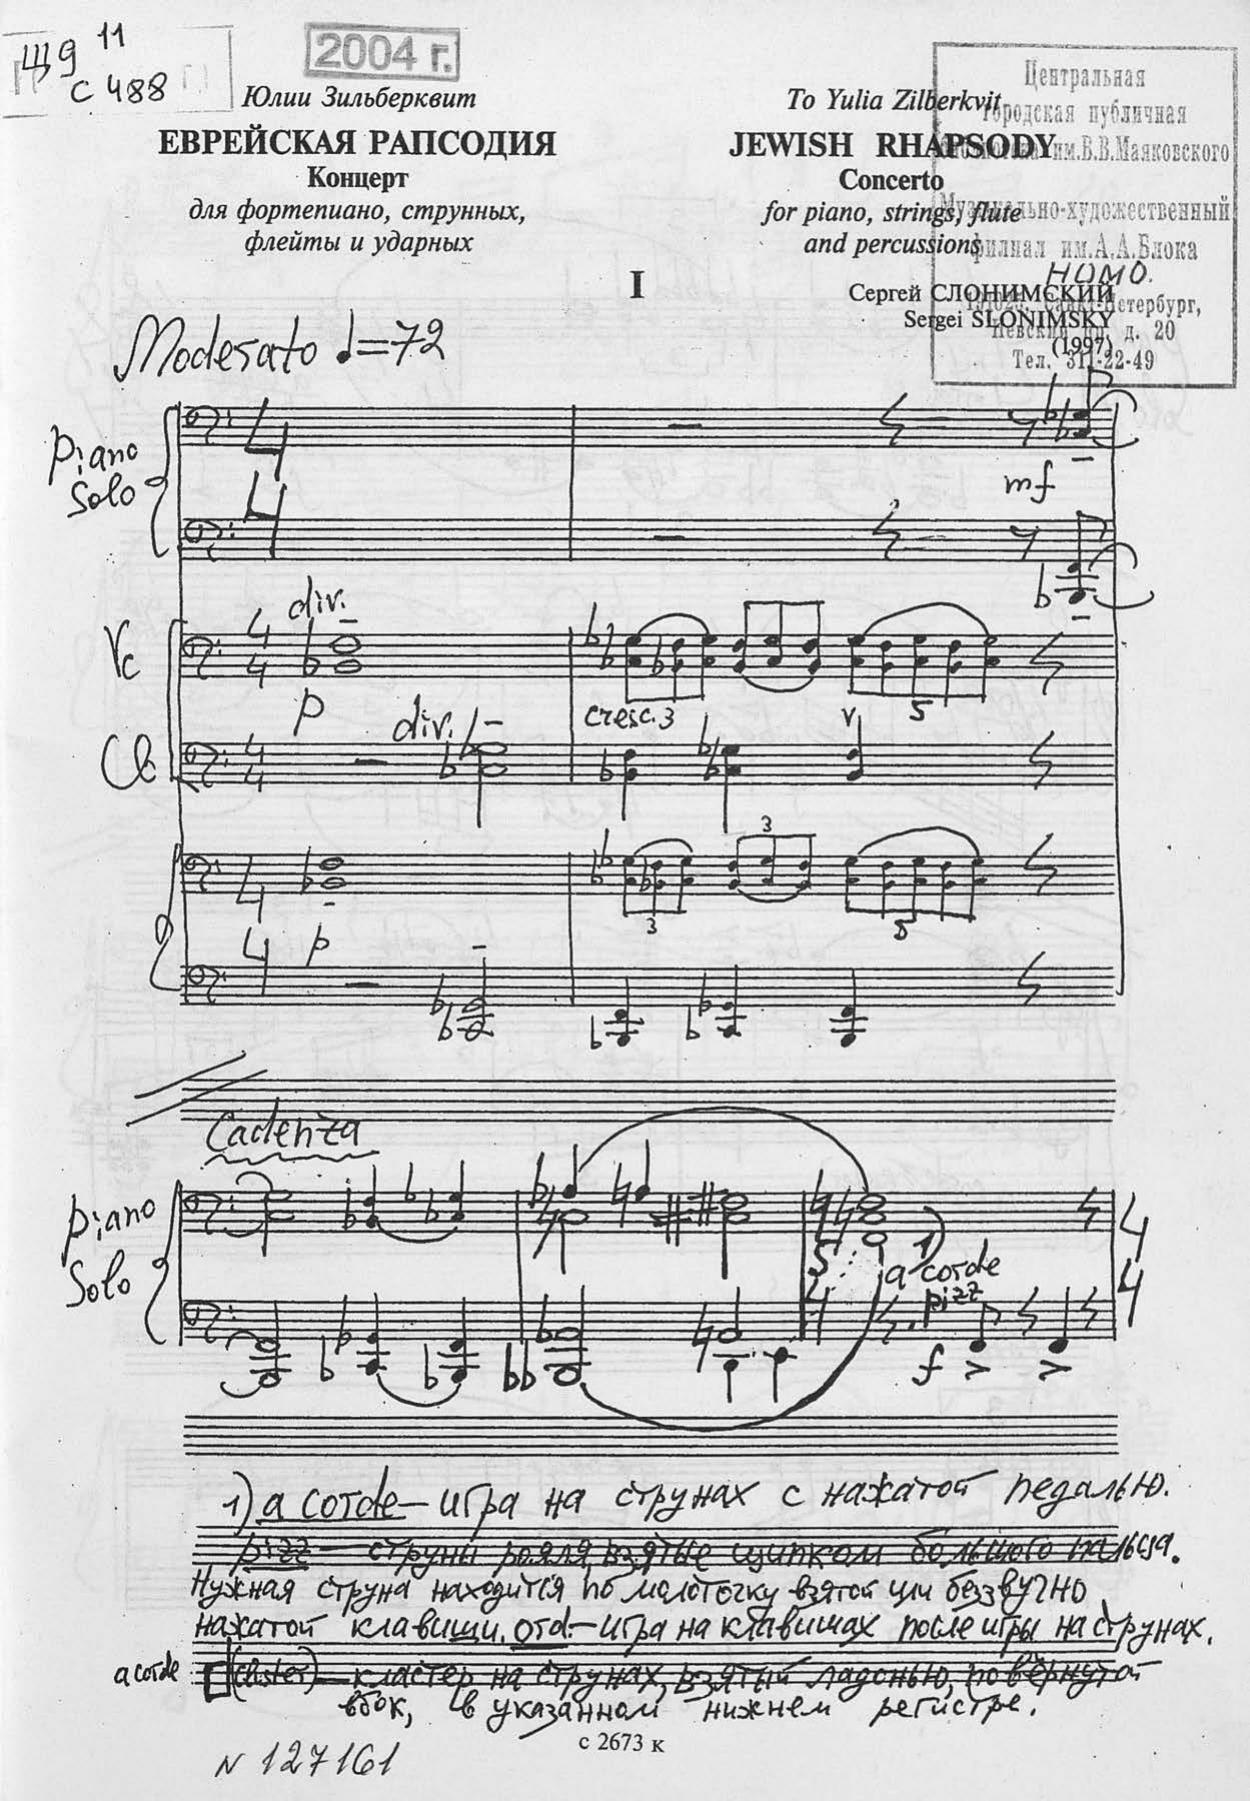 Щ9 11
С 488
2004 г.
Юлии Зильберквит
ЕВРЕЙСКАЯ РАПСОДИЯ
Концерт
для фортепиано, струнных,
флейты и ударных
To Yulia Zilberkvit
JEWISH RHAPSODY
Concerto
for piano, strings, flute
and percussions
Центральная
городская публичная
библиотека им.В.В.Маяковского
Музыкально-художественный
филиал им.А.А.Блока
НОМО.
191025, Санкт-Петербург,
Невский пр. д. 20
Тел. 311-22-49
I
Сергей СЛОНИМСКИЙ
Sergei SLONIMSKY
(1997)
Moderato ♩=72
Piano
Solo
4
4
mf
div.
Vc
4
4
p
cresc. 3
5
div.
Cb
4
4
V
3
4
4
p
3
5
Cadenza
Piano
Solo
5
4
1)
a corde
pizz
f
4
4
1) a corde – игра на струнах с нажатой педалью.
pizz – струны рояля, взятые щипком большого пальца.
Нужная струна находится по молоточку взятой или беззвучно
нажатой клавиши. ord. – игра на клавишах после игры на струнах.
a corde (Claster) – кластер на струнах, взятый ладонью, повёрнутой
вбок, в указанном нижнем регистре.
с 2673 к
N 127161